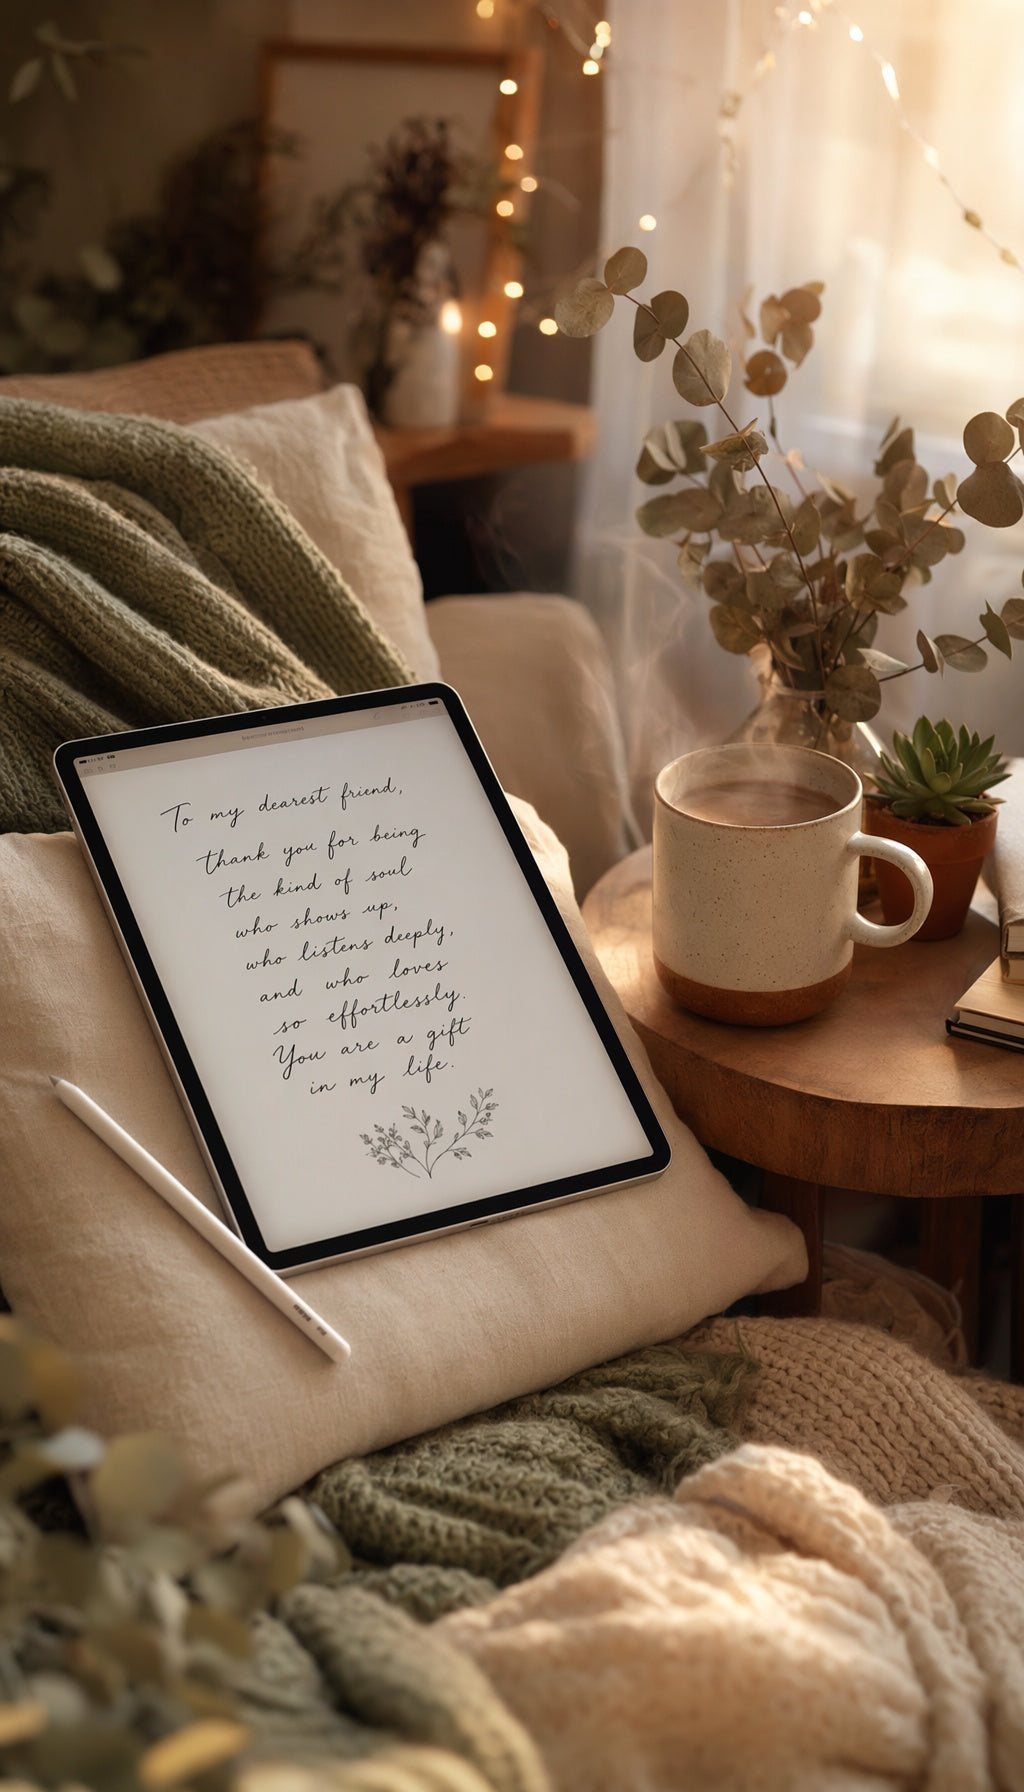 To my dearest friend,
thank you for being
the kind of soul
who shows up,
who listens deeply,
and who loves
so effortlessly.
You are a gift
in my life.